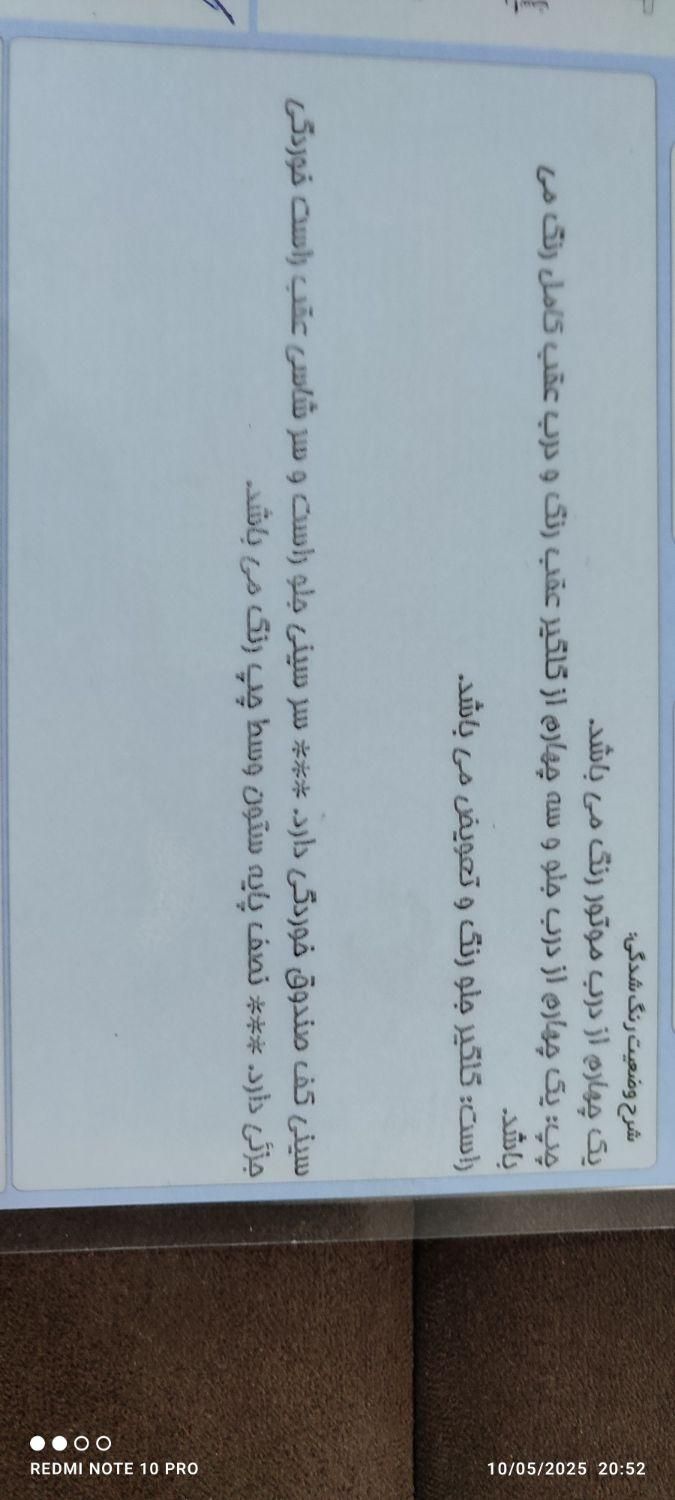 شرح وضعیت رنگ شدگی:
یک چهارم از درب موتور رنگ می باشد.
چپ: یک چهارم از درب جلو و سه چهارم از گلگیر عقب رنگ و درب عقب کامل رنگ می
باشد.
راست: گلگیر جلو رنگ و تعویض می باشد.
سینی کف صندوق خوردگی دارد. *** سر سینی جلو راست و سر شاسی عقب راست خوردگی
جزئی دارد. *** نصف پایه ستون وسط چپ رنگ می باشد.
REDMI NOTE 10 PRO
10/05/2025 20:52